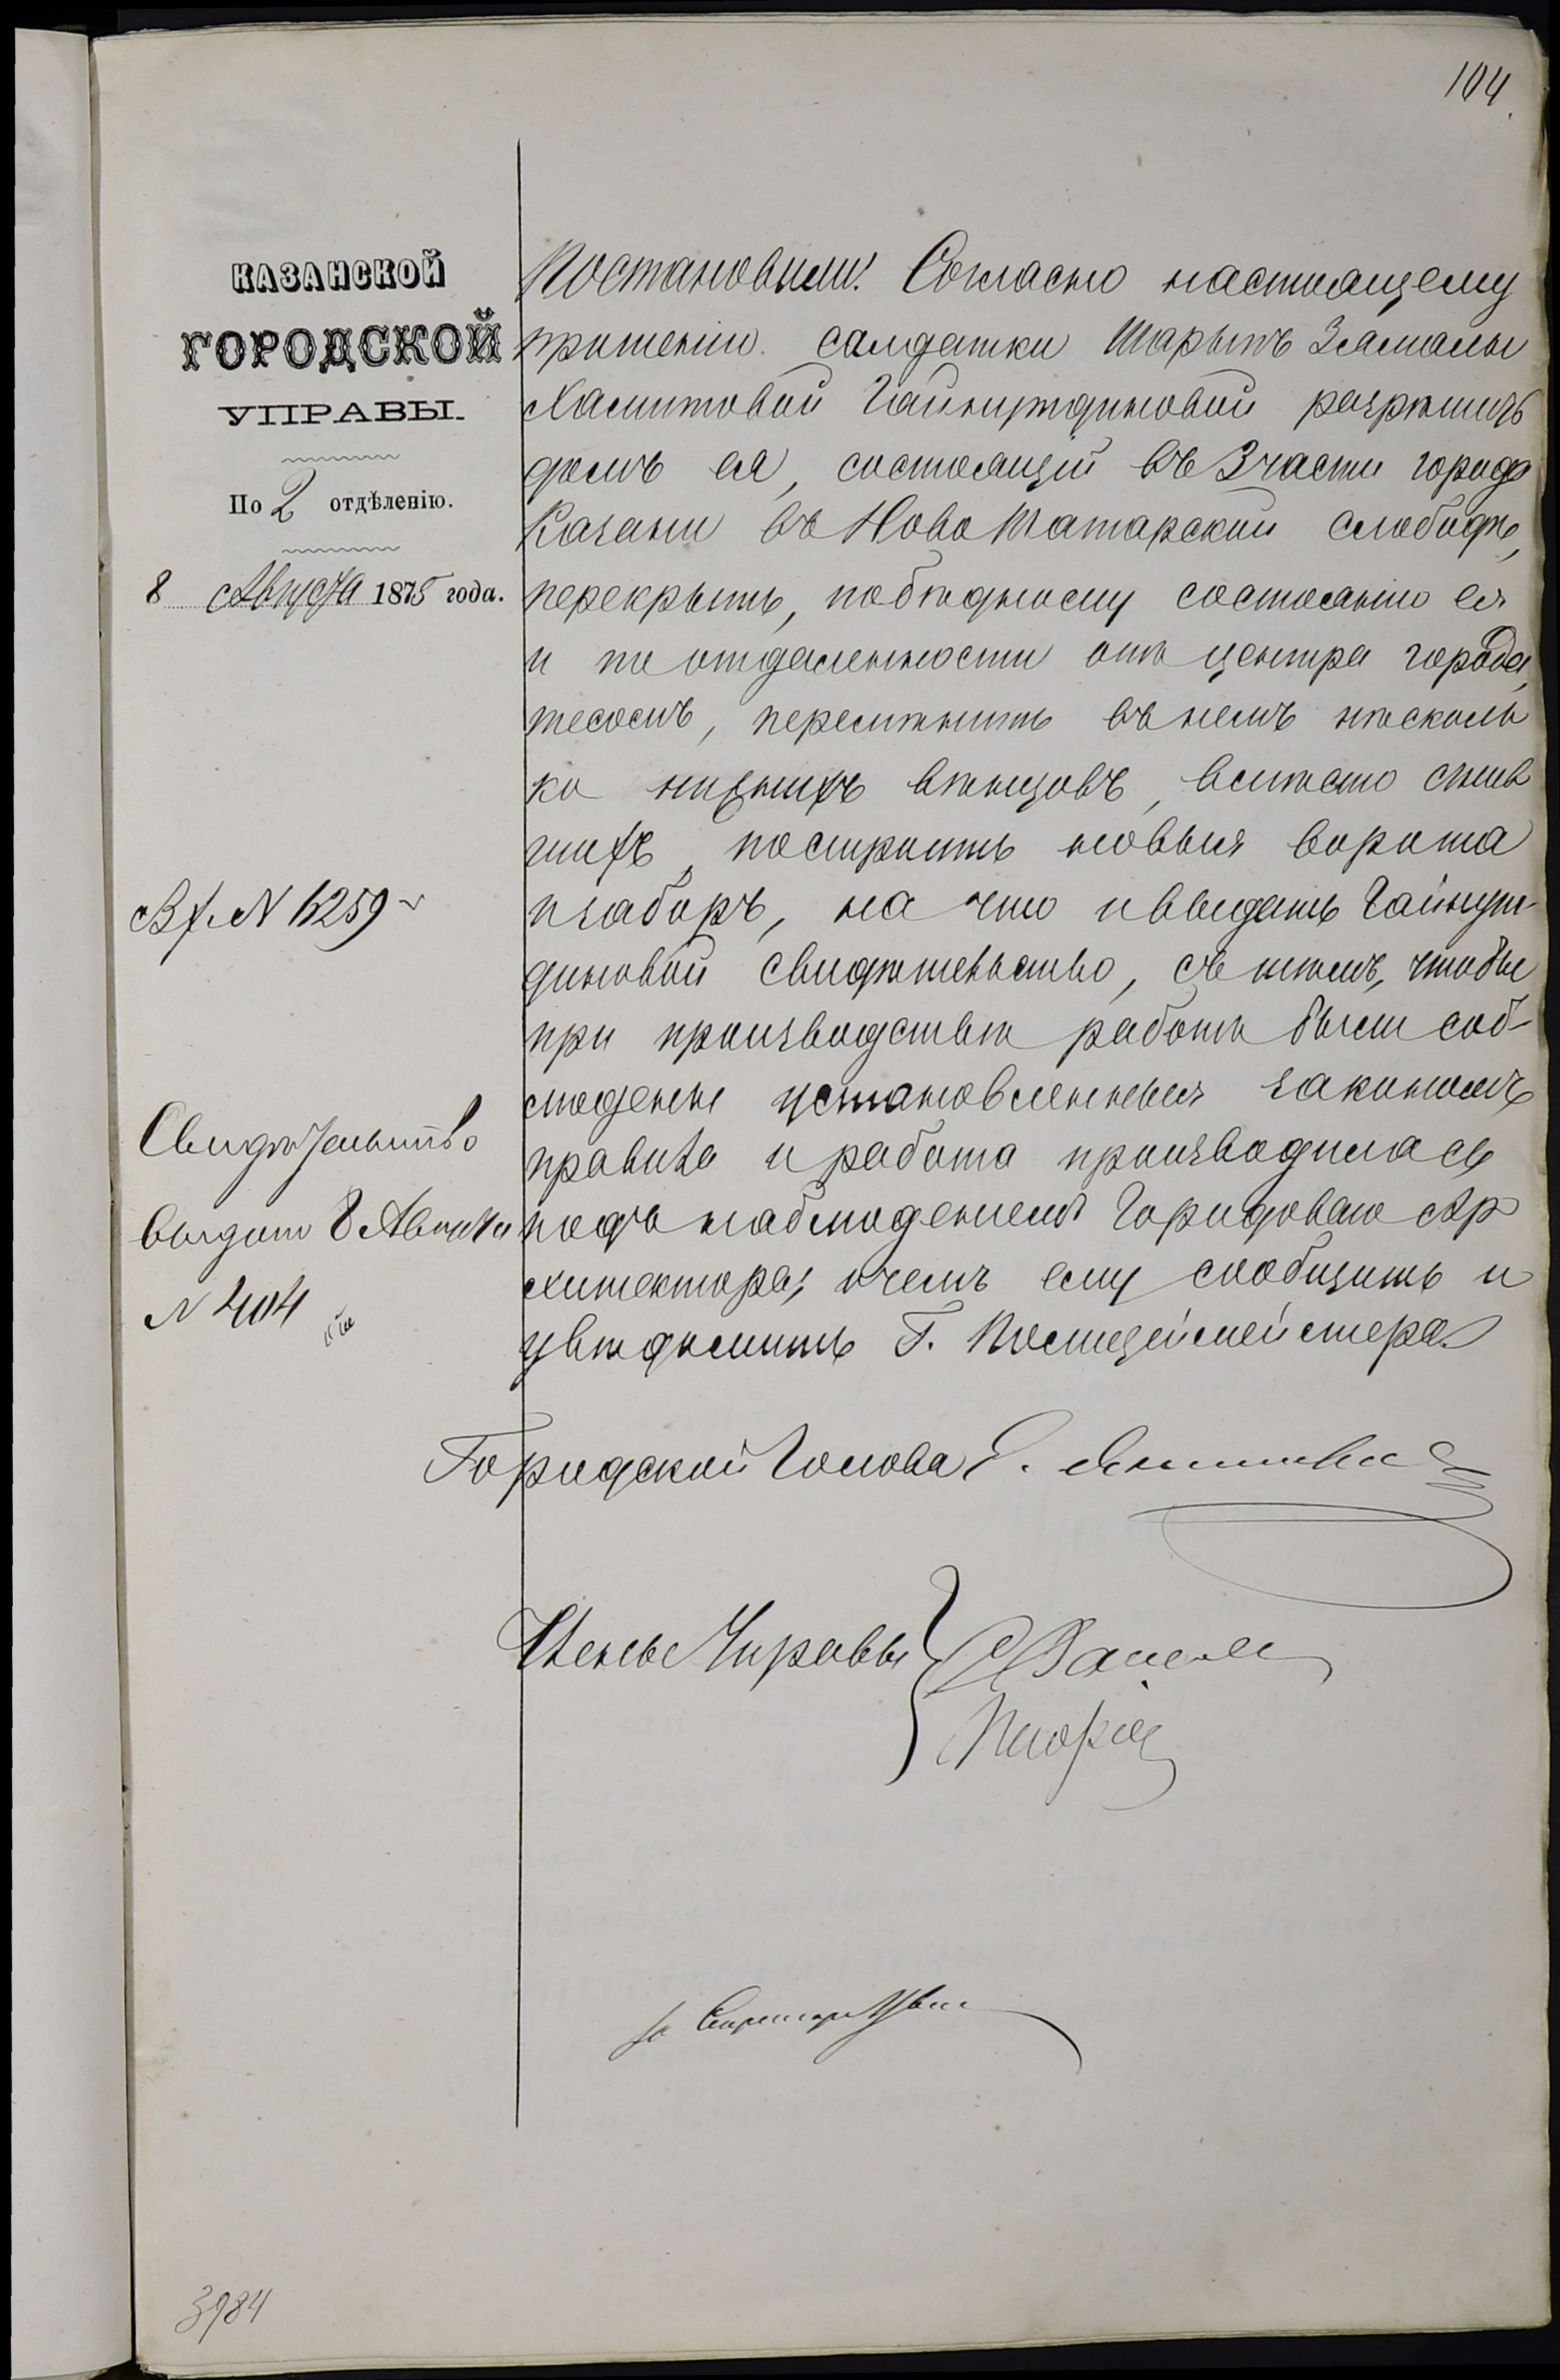 104
КАЗАНСКОЙ
ГОРОДСКОЙ
УПРАВЫ.
По 2 отдѣленію.
8 Августа 1875 года.
Вх. N 5259
Свидѣтельство
выдано 8 Августа
N 404
Постановили: Согласно настоящему
прошенію салдатки Шарыпъ Замалы
Хамитовой Гайнутдиновой разрѣшить
домъ ея, состоящій въ 3 части города
Казани въ Ново Татарской слободѣ,
перекрыть, по бѣдному состоянію ея
и по отдаленности отъ центра города,
тесомъ, перемѣнить въ немъ нѣсколь
ко нижнихъ вѣнцовъ, вмѣсто сгнив
шихъ, построить новыя ворота
и заборъ, на что и выдать Гайнут-
диновой свидѣтельство, съ тѣмъ, чтобы
при производствѣ работъ были соб-
людены установленныя закономъ
правила и работа производилась
подъ наблюденіемъ Городоваго Ар
хитектора, о чемъ ему сообщить и
увѣдомить Г. Полицеймейстера.
Городской Голова Е. Янишевскій
Члены Управы
За Секретаря
3984